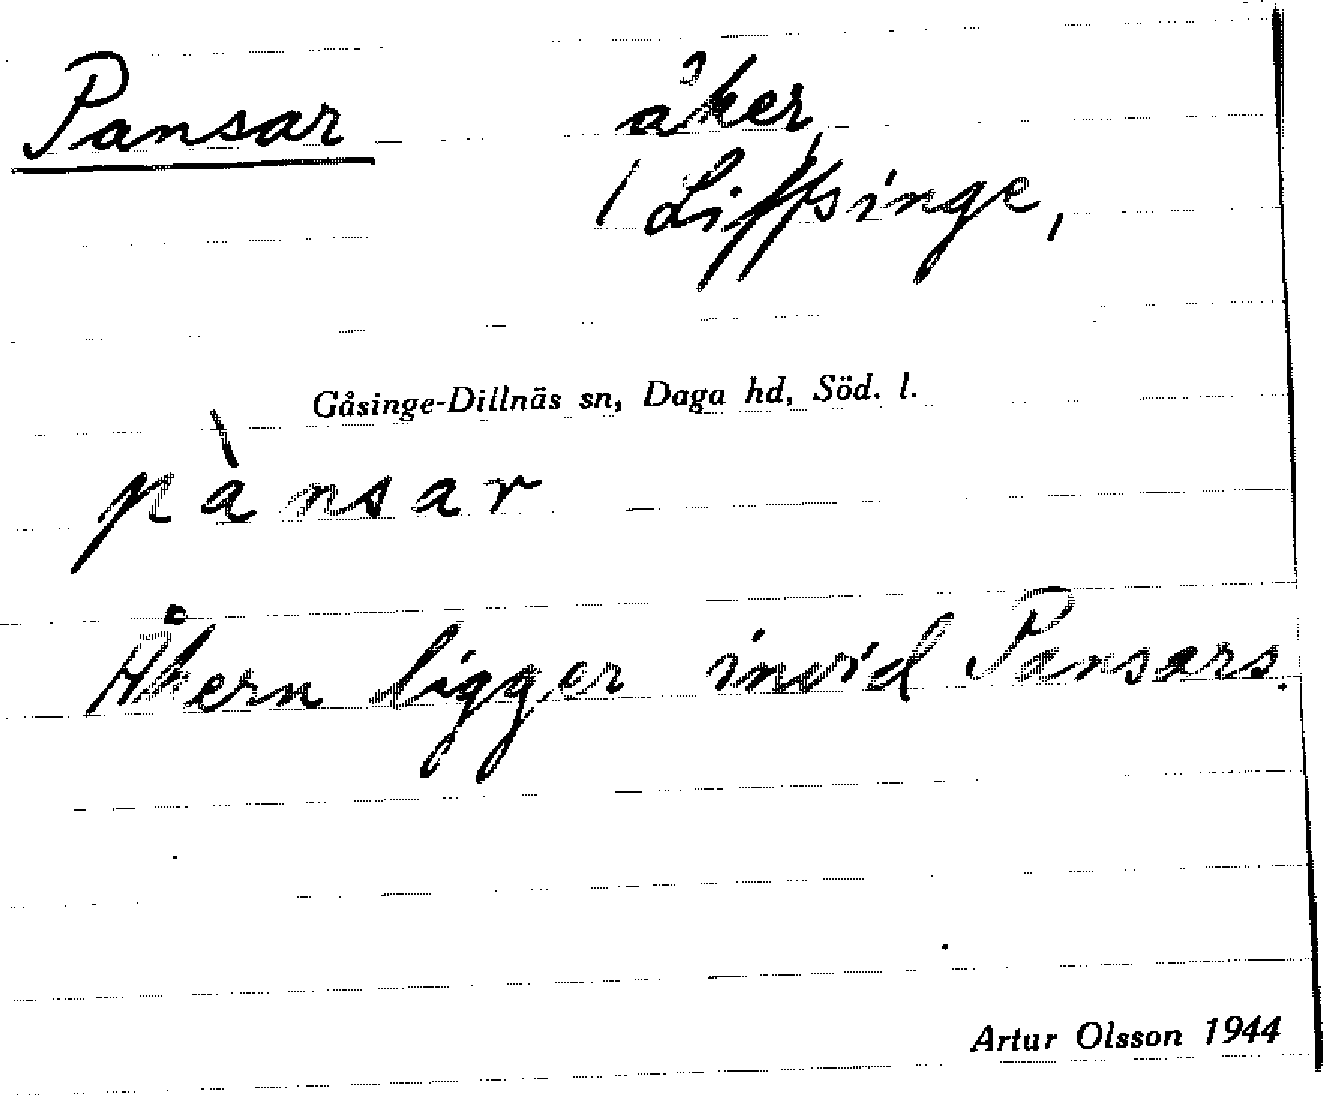 Pansar åker,
/ Lippsinge,
Gåsinge-Dillnäs sn, Daga hd, Söd. l.
pànsar
Åkern ligger invid Pansars.
Artur Olsson 1944